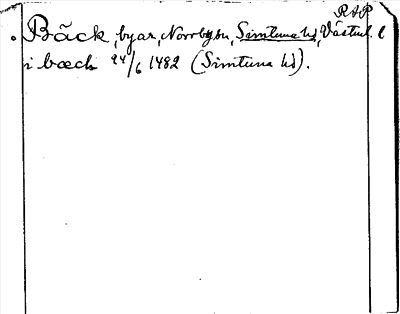 RAP
Bäck, byar, Norrby sn, Simtuna hd, Västml. l
i bæch 24/6 1482 (Simtuna hd).